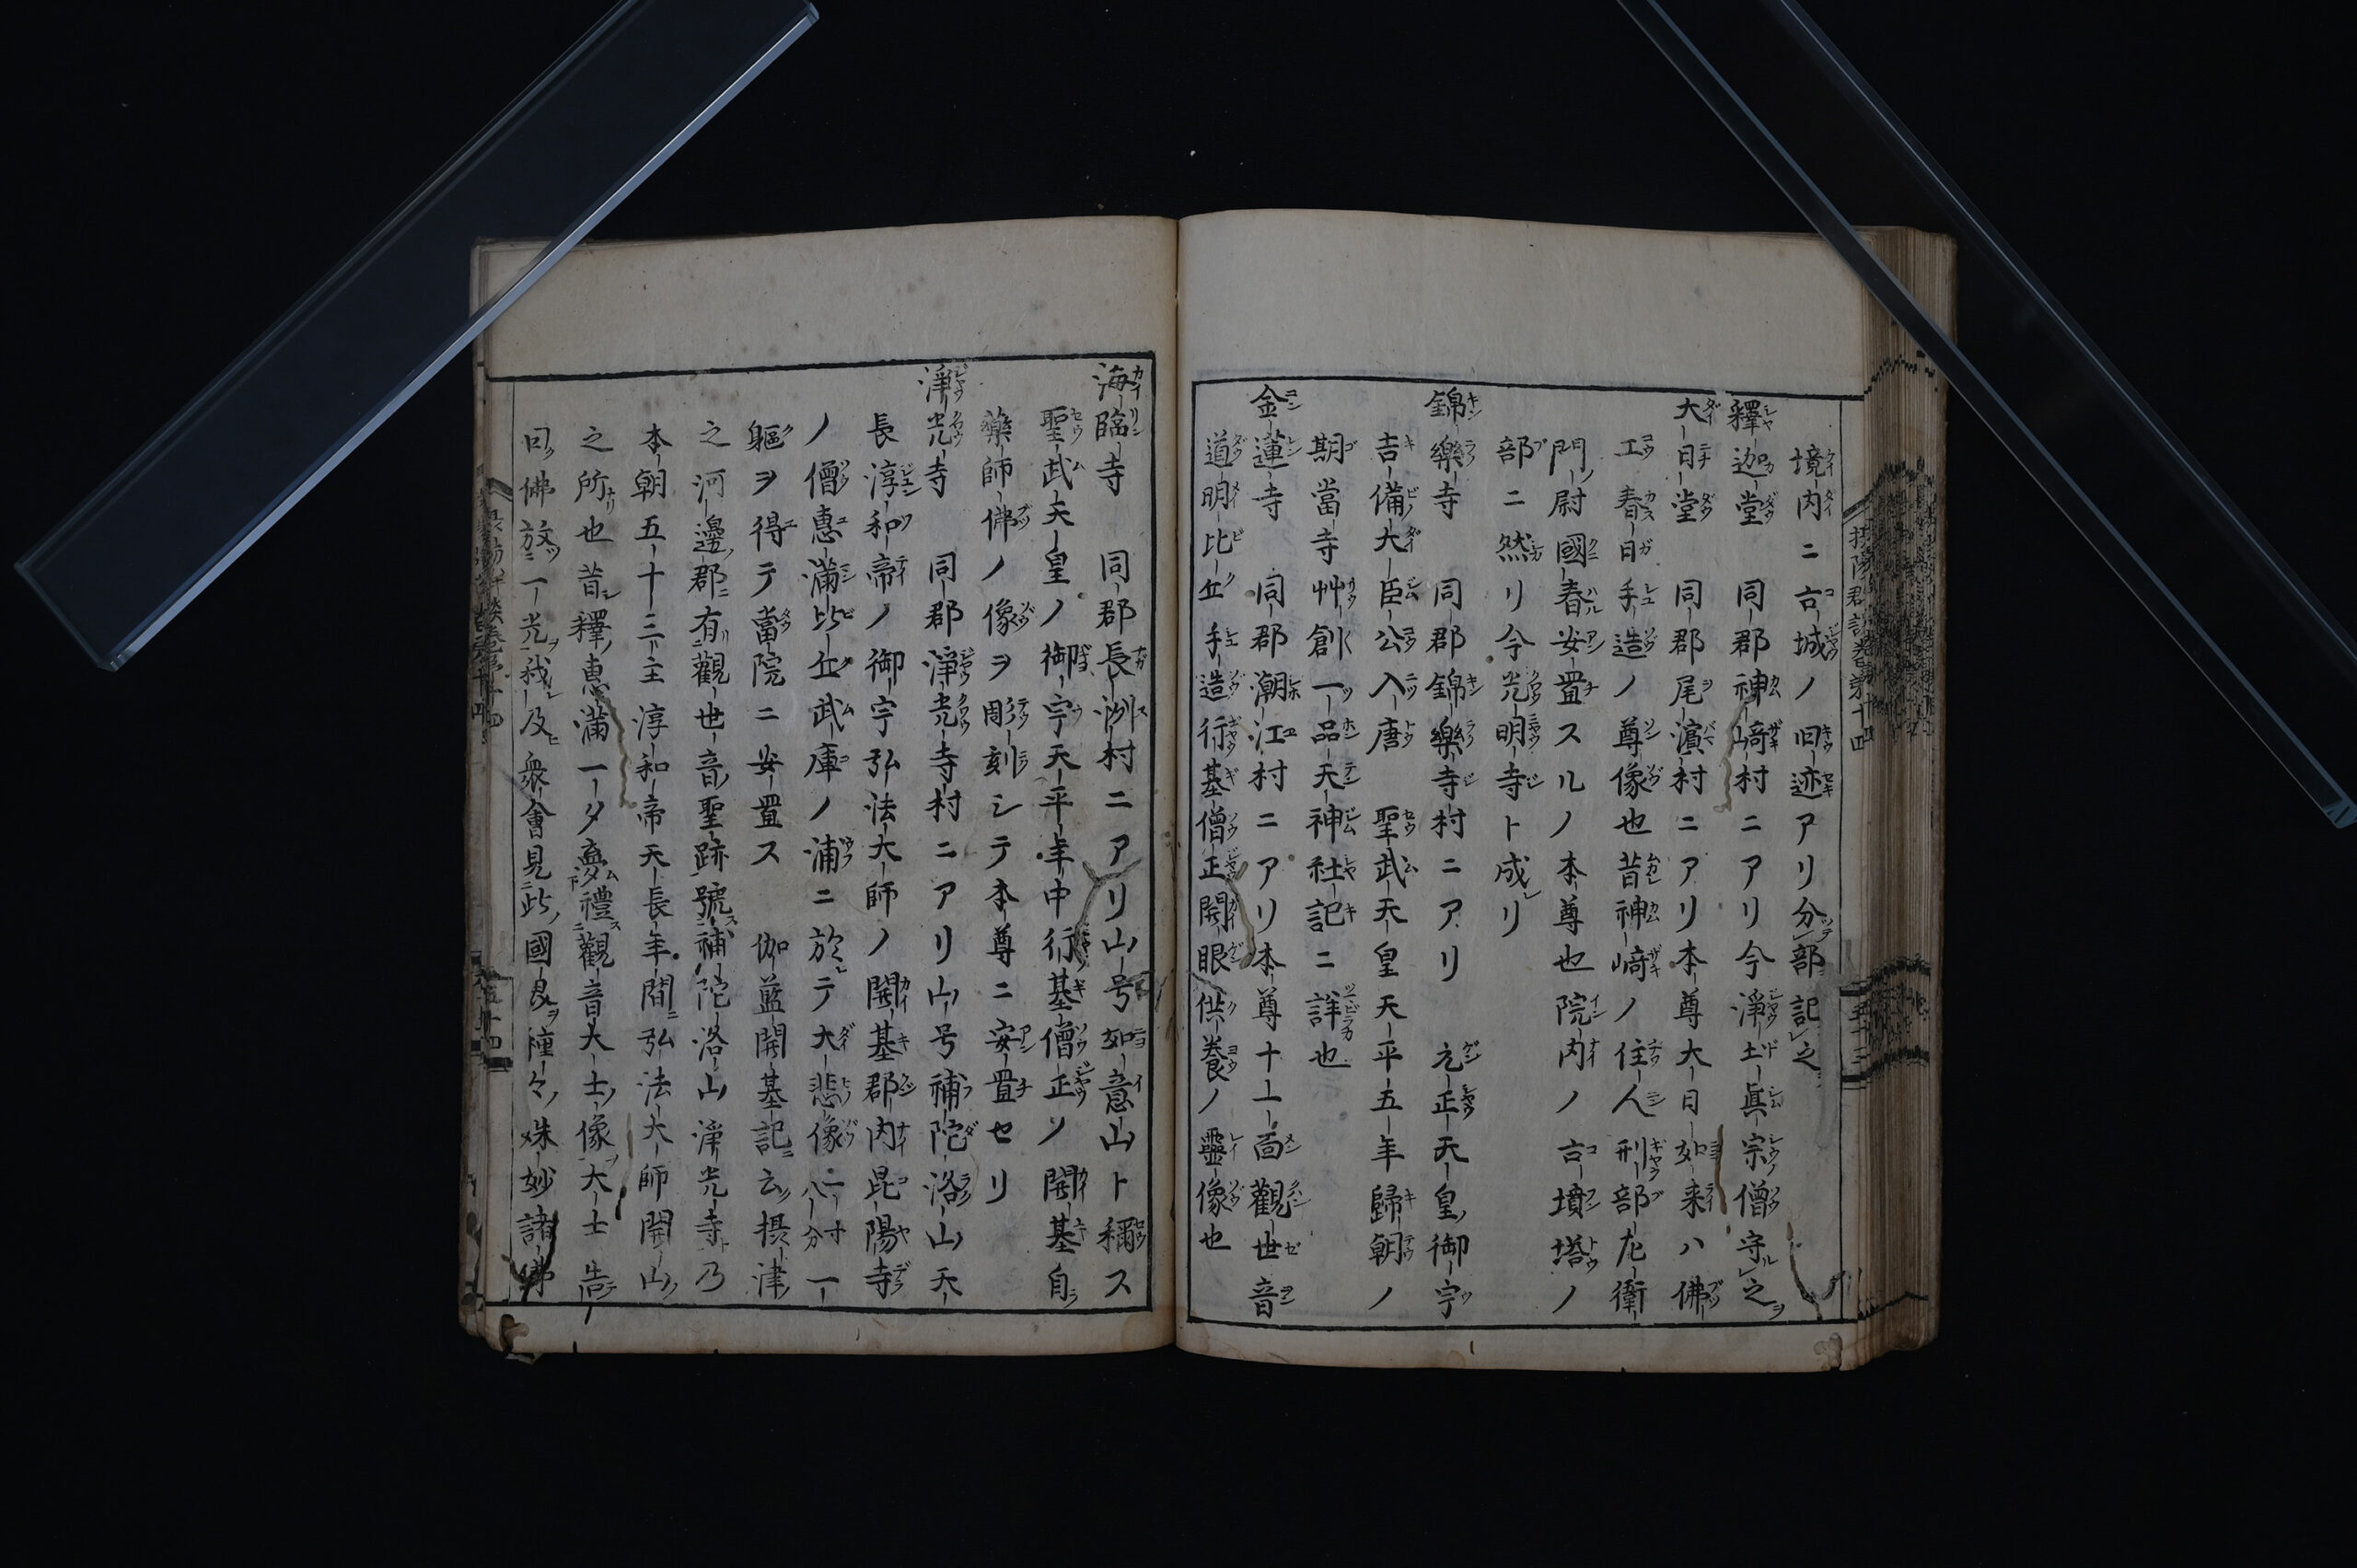 境内ニ古城ノ旧迹アリ分部記之
釋迦堂 同郡神﨑村ニアリ今淨土眞宗僧守之
大日堂 同郡尾濵村ニアリ本尊大日如来ハ佛
工春日手造ノ尊像也昔神﨑ノ住人刑部左衛
門尉國春安置スルノ本尊也院内ノ古墳塔ノ
部ニ然リ今光明寺ト成レリ
錦樂寺 同郡錦樂寺村ニアリ 元正天皇御宇
吉備大臣公入唐 聖武天皇天平五年歸朝ノ
期當寺艸創一品天神社記ニ詳也
金蓮寺 同郡潮江村ニアリ本尊十一面觀世音
道明比丘手造行基僧正開眼供養ノ靈像也
海臨寺 同郡長洲村ニアリ山号如意山ト稱ス
聖武天皇ノ御宇天平年中行基僧正ノ開基自
藥師佛ノ像ヲ彫刻シテ本尊ニ安置セリ
淨光寺 同郡淨光寺村ニアリ山号補陀洛山天
長淳和帝ノ御宇弘法大師ノ開基郡内昆陽寺
ノ僧惠滿比丘武庫ノ浦ニ於テ大悲像一
軀ヲ得テ當院ニ安置ス 伽藍開基記云摂津
之河邊郡有觀世音聖跡號補陀洛山淨光寺乃
本朝五十三主淳和帝天長年間弘法大師開山
之所也昔釋惠滿一夕夢禮觀音大士像大士告
曰佛放一光我及衆會見此國界種々殊妙諸佛